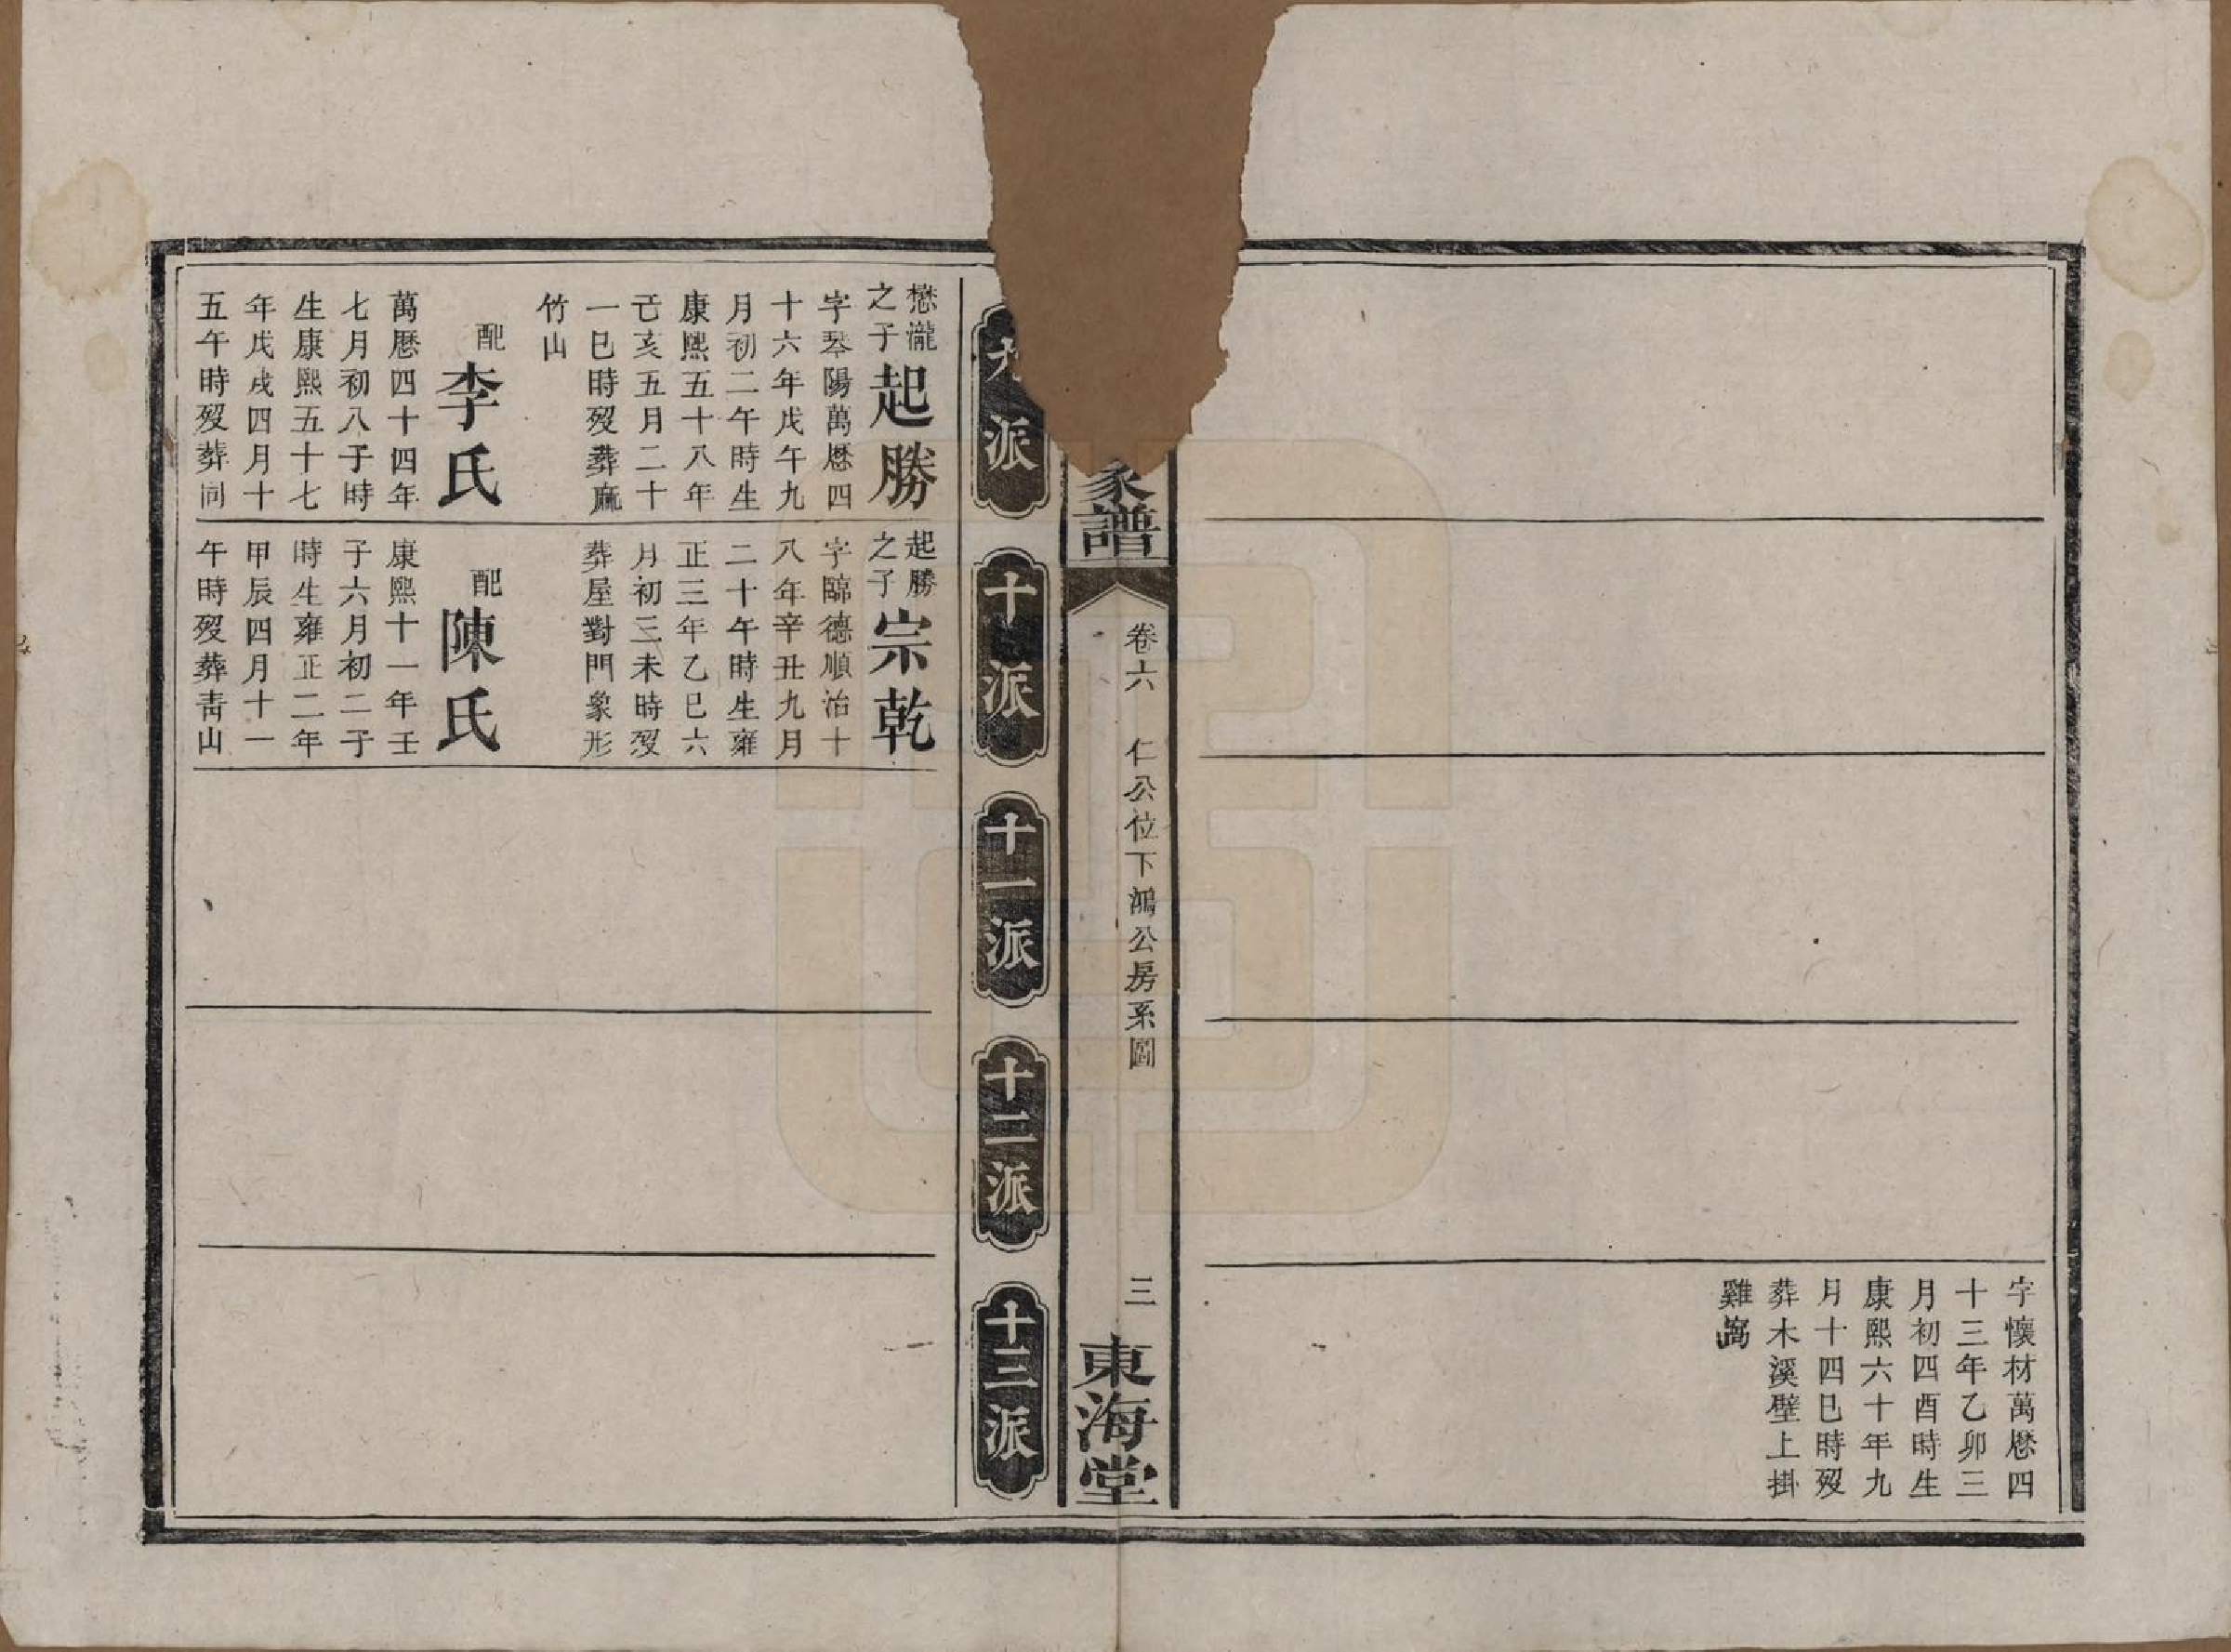 字懷材萬厯四
十三年乙卯三
月初四酉時生
康熙六十年九
月十四巳時殁
葬木溪壁上掛
雞窩
家譜
卷六 仁公位下鴻公房系圖
三
東海堂
九派
十派
十一派
十二派
十三派
懋瀧
之子
起勝
字琴陽萬厯四
十六年戊午九
月初二午時生
康熙五十八年
己亥五月二十
一巳時殁葬麻
竹山
配
李氏
萬厯四十四年
七月初八子時
生康熙五十七
年戊戌四月十
五午時殁葬同
起勝
之子
宗乾
字臨德順治十
八年辛丑九月
二十午時生雍
正三年乙巳六
月初三未時殁
葬屋對門象形
配
陳氏
康熙十一年壬
子六月初二子
時生雍正二年
甲辰四月十一
午時殁葬靑山